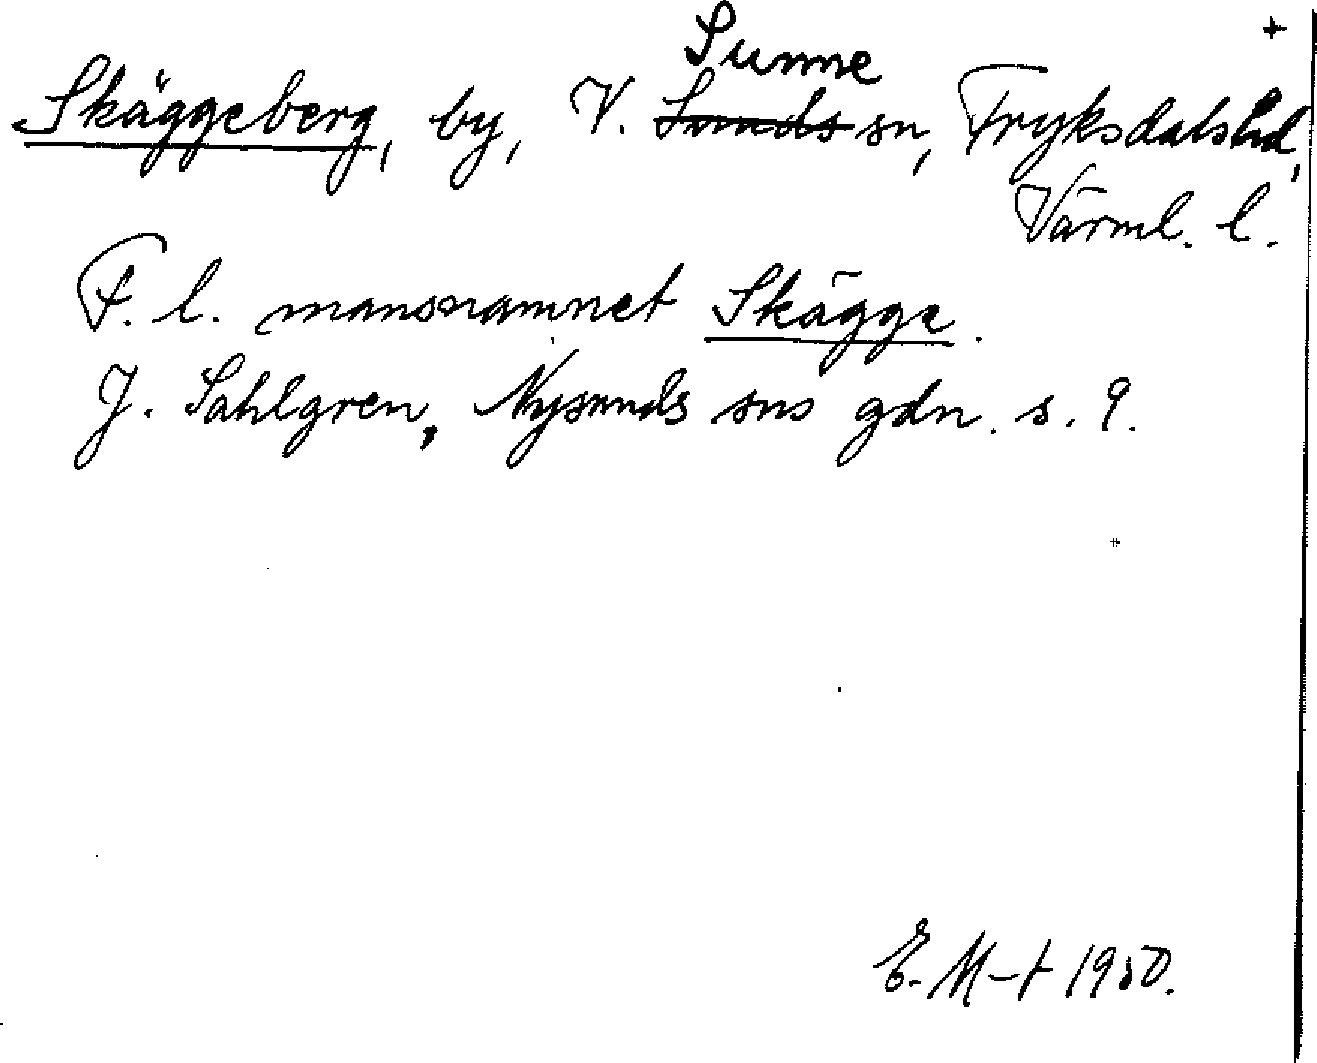 Skäggeberg, by, V. Sunne sn, Fryksdals hd,
Värml. l.
F. l. mansnamnet Skägge.
J. Sahlgren, Nysunds sns gdn. s. 9.
E. M-t 1950.